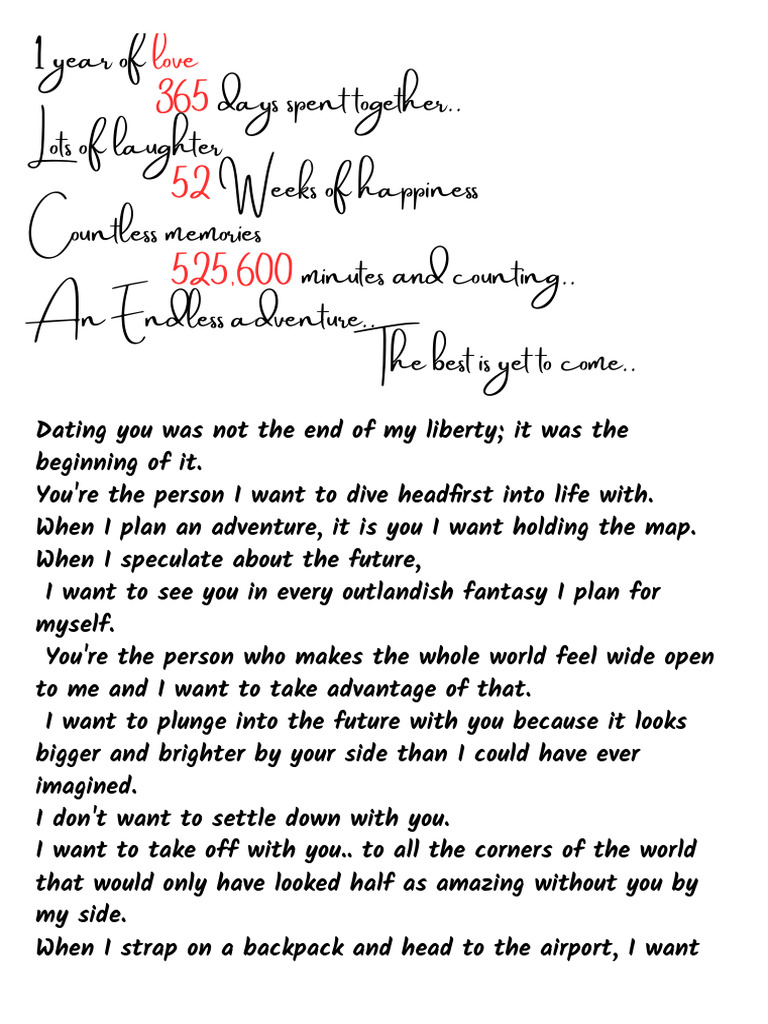 1 year of love
365 days spent together..
Lots of laughter
52 Weeks of happiness
Countless memories
525,600 minutes and counting..
An Endless adventure..
The best is yet to come..
Dating you was not the end of my liberty; it was the
beginning of it.
You're the person I want to dive headfirst into life with.
When I plan an adventure, it is you I want holding the map.
When I speculate about the future,
I want to see you in every outlandish fantasy I plan for
myself.
You're the person who makes the whole world feel wide open
to me and I want to take advantage of that.
I want to plunge into the future with you because it looks
bigger and brighter by your side than I could have ever
imagined.
I don't want to settle down with you.
I want to take off with you.. to all the corners of the world
that would only have looked half as amazing without you by
my side.
When I strap on a backpack and head to the airport, I want